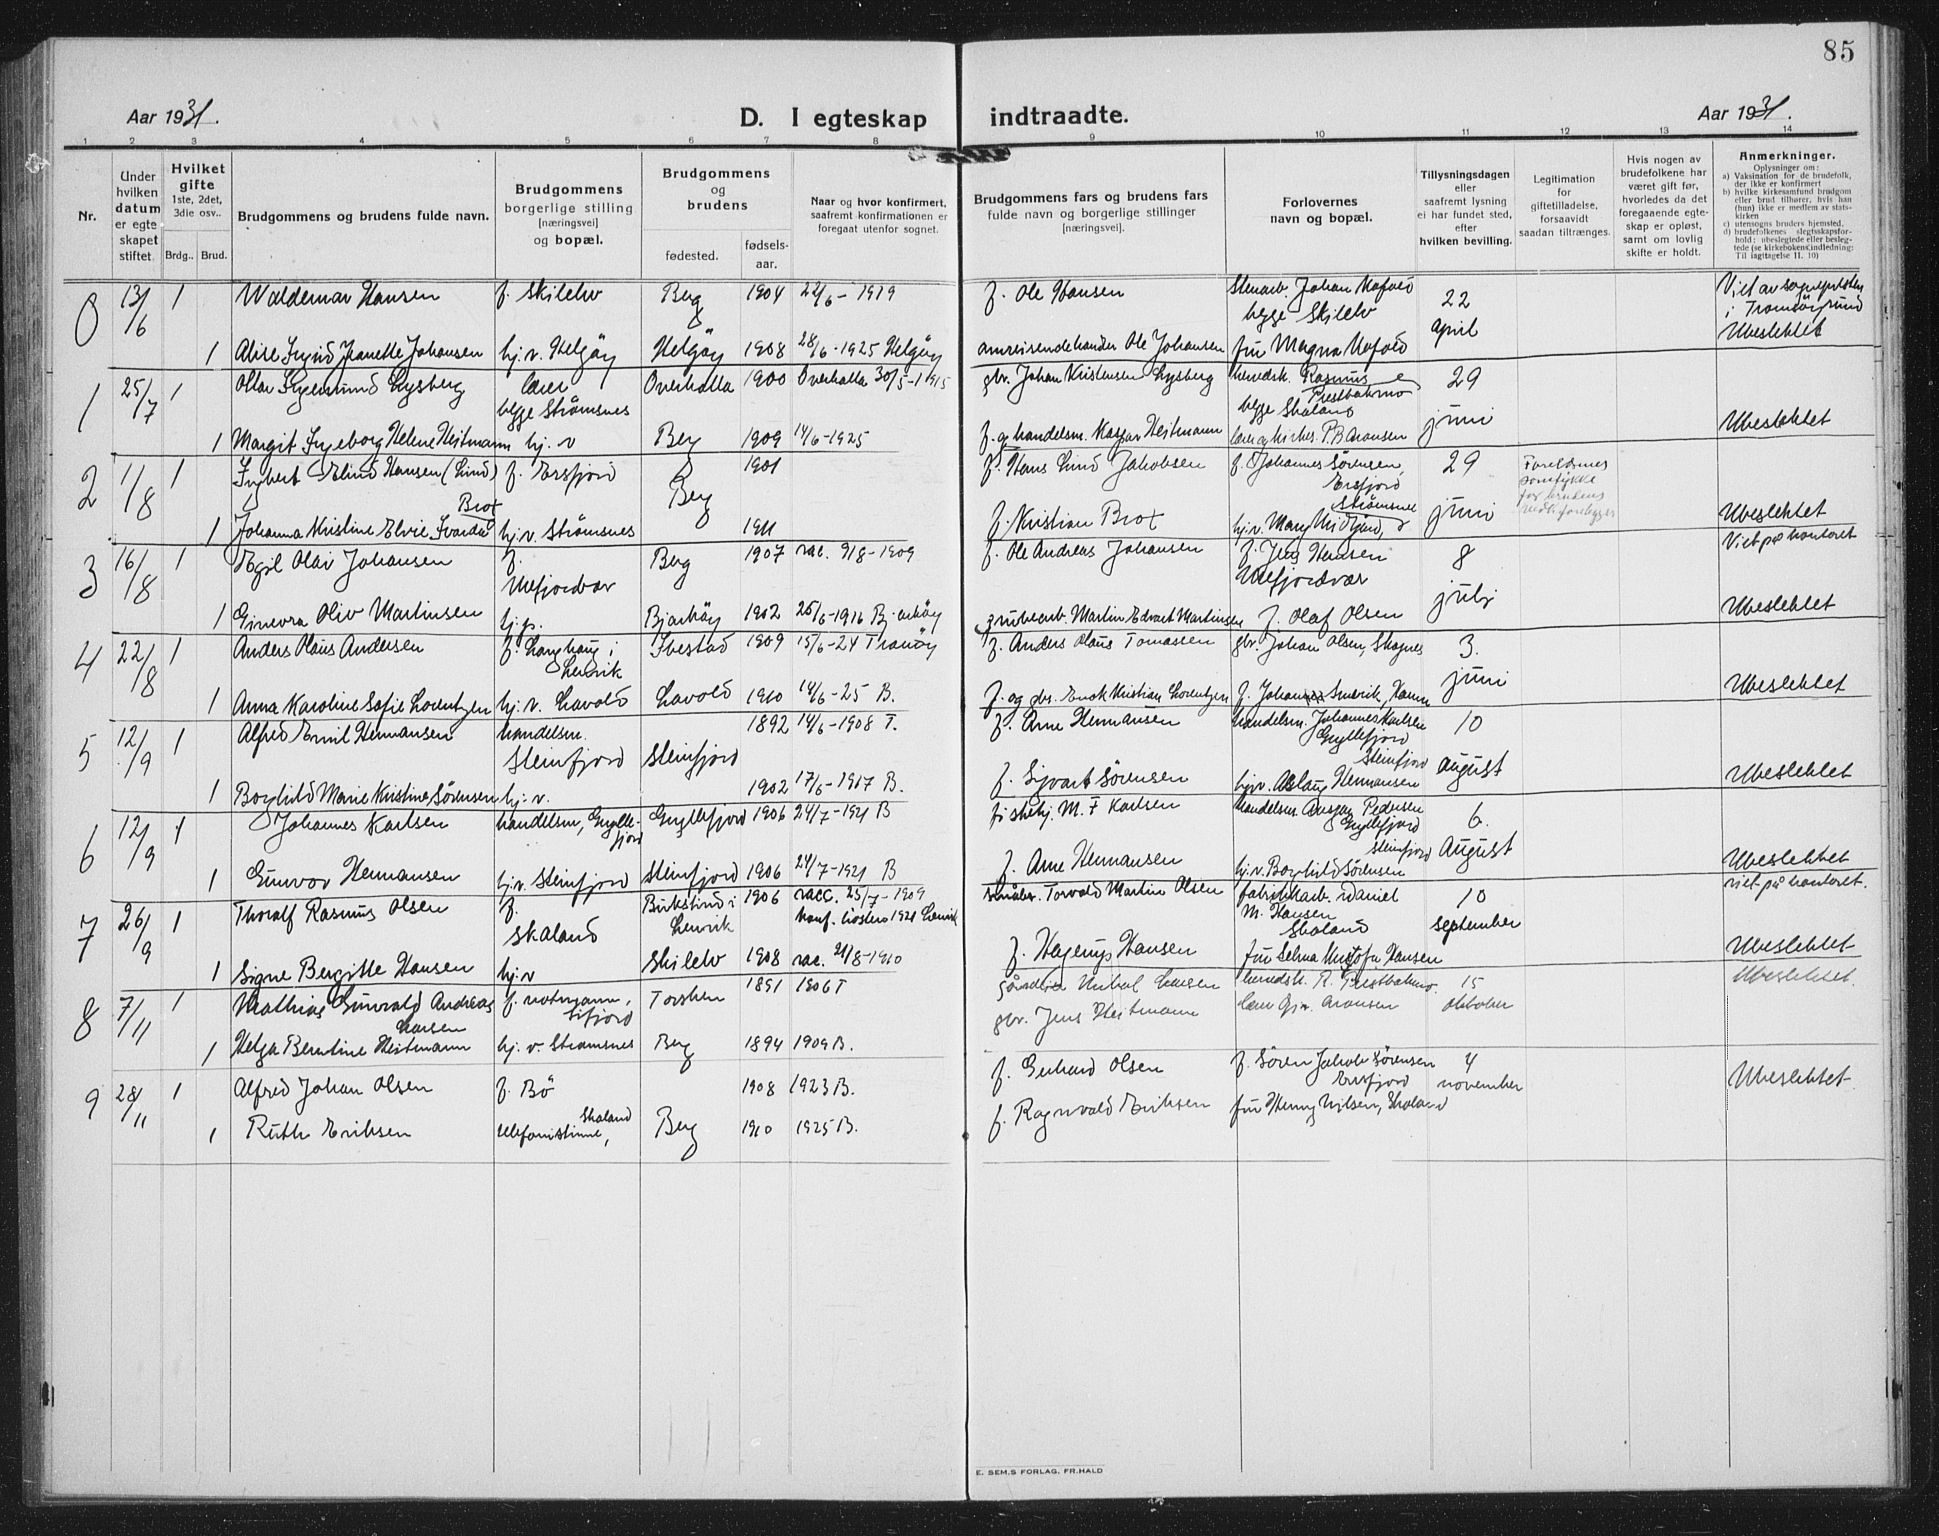 85
Aar 1931.
D. I egteskap indtraadte.
Aar 1931.
1 2 3 4 5 6 7 8 9 10 11 12 13 14
Nr.
Under hvilken datum er egteskapet stiftet.
Hvilket gifte
1ste, 2det, 3die osv..
Brdg.. Brud.
Brudgommens og brudens fulde navn.
Brudgommens borgerlige stilling [næringsvei] og bopæl.
Brudgommens og brudens
fødested.
fødselsaar.
Naar og hvor konfirmert, saafremt konfirmationen er foregaat utenfor sognet.
Brudgommens fars og brudens fars fulde navn og borgerlige stillinger [næringsvei].
Forlovernes navn og bopæl.
Tillysningsdagen eller saafremt lysning ei har fundet sted, efter hvilken bevilling.
Legitimation for giftetilladelse, forsaavidt saadan tiltrænges.
Hvis nogen av brudefolkene har været gift før, hvorledes da det foregaaende egteskap er opløst, samt om lovlig skifte er holdt.
Anmerkninger.
Oplysninger om:
a) Vaksination for de brudefolk, der ikke er konfirmert
b) hvilke kirkesamfund brudgom eller brud tilhører, hvis han (hun) ikke er medlem av statskirken
c) utensogns bruders hjemsted,
d) brudefolkenes slegtsskapsforhold: ubeslegtede eller beslegtede (se kirkebokens indledning: Til iagttagelse II. 10)
0 13/6 1 Waldemar Hansen f. Skilelv Berg 1904 22/6-1919 f. Ole Hansen Stenarb. Johan Hofsøe begge Skilelv 22 april Viet av sognepresten i Tromsøysund
1 Alise Ingrid Jeanette Johansen hj.v. Helgøy Helgøy 1908 28/6-1925 Helgøy omreisendehandler Ole Johansen fru Magna Hofsøe Ubeslektet
1 25/7 1 Ottar Sigemund Lysberg lærer begge Strømsnes Overhalla 1900 Overhalla 30/5-1915 gbr. Johan Kristensen Lysberg herredsk. Rasmus Prestbakmo begge Skaland 29 juni
1 Margit Ingeborg Helene Heitmann hj. v Berg 1909 14/6-1925 f. og handelsm. Kaspar Heitmann lær og kirkes. P. B Aronsen Ubeslektet
2 1/8 1 Ingbert Elind Hansen (Lind) f. Ersfjord Berg 1901 f. Hans Lind Jakobsen f. Johannes Sørensen, Ersfjord 29 juni
Brox
1 Johanna Kristine Elvie Svanda hj.v. Strømsnes 1911 f. Kristian Brox Strømsnes Ubeslektet
3 16/8 1 Egil Olav Johansen f. Mefjordvær Berg 1907 vac. 9/8-1909 f. Ole Andreas Johansen f. Jens Hansen Mefjordvær 8 july Viet på kontoret
1 Ginevra Oliv Martinsen hj.p. Bjarkøy 1902 25/6-1916 Bjarkøy grubearb. Martin Edvart Martinsen f. Olaf Olsen Ubeslektet
4 22/8 1 Anders Claus Andersen f. Langhaug i Lenvik Ibestad 1909 15/6-24 Tranøy f. Anders Claus Tomassen gbr. Johan Olsen, 3. juni
1 Anna Karoline Sofie Lorentzen hj.v. Lavold Lavold 1910 14/6-25 B. f. og gbr. Enok Kristian Lorentzen Ubeslektet
5 12/9 1 Alfred Emil Hermansen handelsm. Steinfjord Steinfjord 1892 14/6-1908 T. f. Arne Hermansen handelsm. Johannes Karlsen Gryllefjord 10 august
1 Borghild Marie Kristine Sørensen hj.v. 1902 17/6-1917 B. f. Sigvart Sørensen Steinfjord hj.v. Aslaug Hermansen Ubeslektet
6 12/9 1 Johannes Karlsen handelsm, Gryllefjord Gryllefjord 1906 24/7-1921 B fiskehj. M. F Karlsen handelsm. Ansgar Pedersen Gryllefjord 6. August
1 Gunvor Hermansen hj.v. Steinfjord Steinfjord 1906 24/7-1921 B f. Arne Hermansen Steinfjord hj.v. Borghild Sørensen Ubeslektet
7 26/9 1 Thoralf Rasmus Olsen f. Skaland Bukskind i Lenvik 1906 vacc. 25/7-1909 konf. 1921 Lenvik Torvald Martin Olsen fabrikkarb. Daniel M. Hansen Skaland 10 september viet på kontoret.
1 Signe Bergitte Hansen hj.v Skilelv 1908 vac. 21/8-1910 f. Hagerup Hansen fru Selma Hansen Ubeslektet
8 7/11 1 Mathias Gunvald Andreas Larsen f. notmann, Torsken 1891 1906 T Larsen herredsk. R. Prestbakmo. 15 oktober Ubeslektet.
1 Helga Berntine Heitmann hj. v. Strømsnes Berg 1894 1909 B. gbr. Jens Heitmann Aronsen
9 28/11 1 Alfred Johan Olsen f. Bø 1908 1923 B. f. Gerhard Olsen f. Søren Jakob Sørensen Ersfjord 4 november Ubeslektet
1 Ruth Eriksen telefonistinne, Skaland Berg 1910 1925 B. f. Ragnvald Eriksen fru Henny Nilsen, Skaland
E. SEM,S FORLAG, FR.HALD